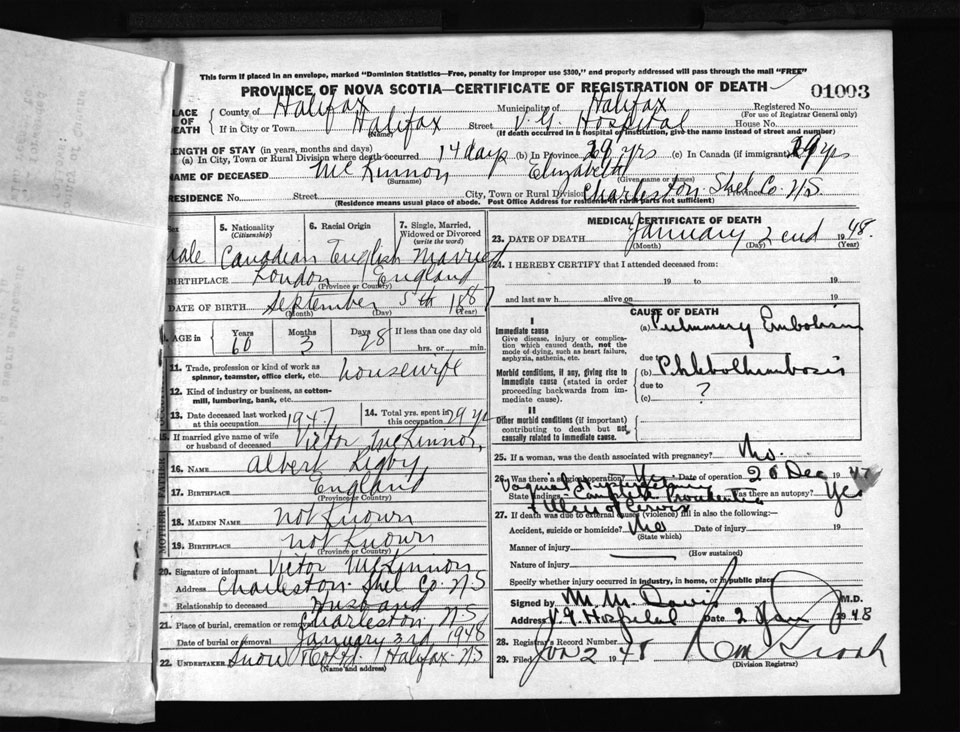 This form if placed in an envelope, marked "Dominion Statistics—Free, penalty for improper use $300," and properly addressed will pass through the mail "FREE"
PROVINCE OF NOVA SCOTIA—CERTIFICATE OF REGISTRATION OF DEATH 01003
LACE OF DEATH County of Halifax Municipality of Halifax Registered No.
(For use of Registrar General only)
If in City or Town Halifax Street V.G. Hospital House No.
(Name) (If death occurred in a hospital or institution, give the name instead of street and number)
LENGTH OF STAY (in years, months and days)
(a) In City, Town or Rural Division where death occurred 14 days (b) In Province 29 yrs (c) In Canada (if immigrant) 29 yrs
NAME OF DECEASED McKinnon Elizabeth
(Surname) (Given name or names)
RESIDENCE No. Street City, Town or Rural Division Charleston Shel Co. N.S
(Residence means usual place of abode. Post Office Address for residents of rural parts not sufficient)
5. Nationality (Citizenship) 6. Racial Origin 7. Single, Married, Widowed or Divorced (write the word)
male Canadian English Married
BIRTHPLACE London England
(Province or Country)
DATE OF BIRTH September 5th 1887
(Month) (Day) (Year)
AGE in Years Months Days If less than one day old
60 3 28 hrs. or min.
11. Trade, profession or kind of work as spinner, teamster, office clerk, etc. housewife
12. Kind of industry or business, as cotton-mill, lumbering, bank, etc.
13. Date deceased last worked at this occupation 1947 14. Total yrs. spent in this occupation 29 yrs
15. If married give name of wife or husband of deceased Victor McKinnon,
FATHER
16. NAME Albert Rigby,
17. BIRTHPLACE England
(Province or Country)
MOTHER
18. MAIDEN NAME not known
19. BIRTHPLACE not known
(Province or Country)
20. Signature of informant Victor McKinnon
Address Charleston Shel Co. N.S
Relationship to deceased Husband
21. Place of burial, cremation or removal Charleston, N.S
Date of burial or removal January 3rd 1948
22. UNDERTAKER Snow & Co Ltd. Halifax N.S
(Name and address)
MEDICAL CERTIFICATE OF DEATH
23. DATE OF DEATH January 2nd 1948.
(Month) (Day) (Year)
24. I HEREBY CERTIFY that I attended deceased from:
19 to 19
and last saw h alive on 19
CAUSE OF DEATH
I
Immediate cause (a) Pulmonary Embolism
Give disease, injury or complication which caused death, not the mode of dying, such as heart failure, asphyxia, asthenia, etc.
due to
Morbid conditions, if any, giving rise to immediate cause (stated in order proceeding backwards from immediate cause). (b) Phlebothrombosis
due to ?
(c)
II
Other morbid conditions (if important) contributing to death but not causally related to immediate cause.
25. If a woman, was the death associated with pregnancy? No.
26. Was there a surgical operation? Yes Date of operation 20 Dec 1947
Vaginal
State findings Complete Procidentia Was there an autopsy? Yes
27. If death was due to external causes (violence) fill in also the following:—
Accident, suicide or homicide? No Date of injury 19
(State which)
Manner of injury
(How sustained)
Nature of injury
Specify whether injury occurred in industry, in home, or in public place
Signed by M. M. Davis M.D.
Address V.G. Hospital Date 2 Jan 1948
28. Registrar's Record Number
29. Filed Jan 2 1948
(Division Registrar)